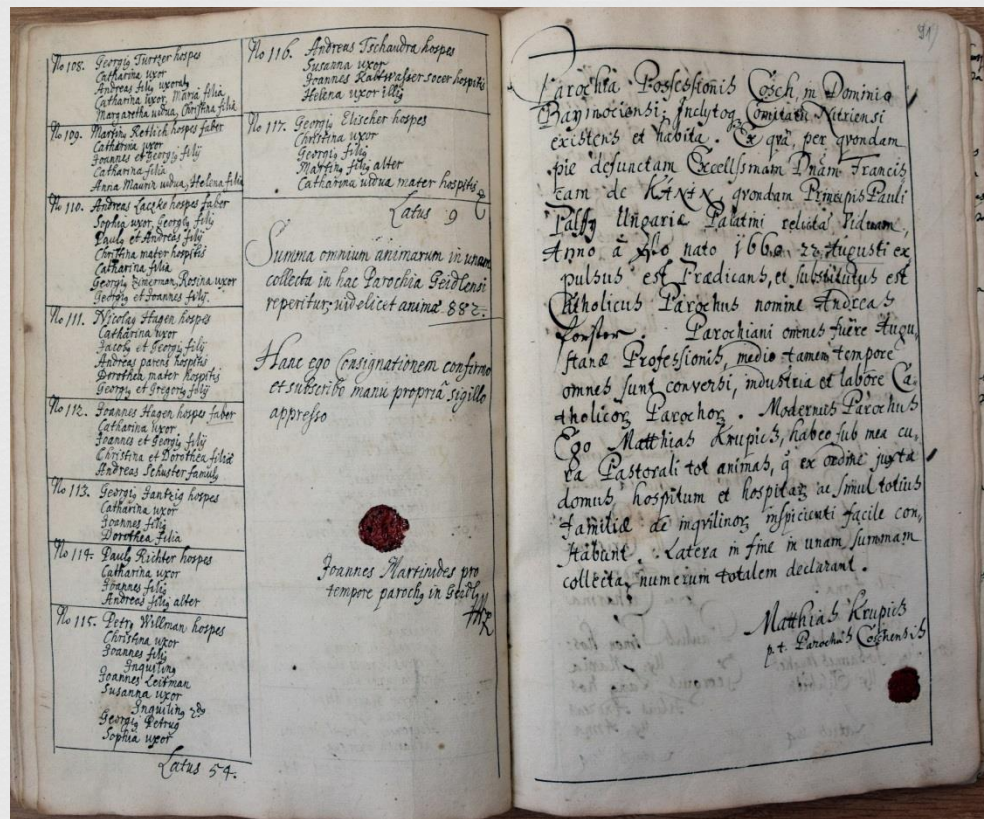 No 108. Georgiꝰ Turtzer hospes
Catharina uxor
Andreas filiꝰ uxoratꝰ
Catharina uxor, Maria filia
Margaretha vidua, Christina filia
No 109. Martinꝰ Rotlich hospes faber
Catharina uxor
Joannes et Georgiꝰ filÿ
Catharina filia
Anna Maurin vidua, Helena filia
No 110. Andreas Laczko hospes faber
Sophia uxor, Georgiꝰ filiꝰ
Paulꝰ et Andreas filÿ
Christina mater hospitis
Catharina filia
Georgiꝰ Zimerman, Rosina uxor
Georgiꝰ et Joannes filÿ.
No 111. Nicolaꝰ Hagen hospes
Catharina uxor
Jacobꝰ et Georgiꝰ filÿ
Andreas parens hospitis
Dorothea mater hospitis
Georgiꝰ et Gregoriꝰ filÿ
No 112. Joannes Hagen hospes faber
Catharina uxor.
Joannes et Georgiꝰ filÿ
Christina et Dorothea filiæ
Andreas Schuster famulꝰ
No 113. Georgiꝰ Jantzig hospes
Catharina uxor
Joannes filiꝰ
Dorothea filia
No 114. Paulꝰ Richter hospes
Catharina uxor
Joannes filiꝰ
Andreas filiꝰ alter
No 115. Petrꝰ Willman hospes
Christina uxor
Joannes filiꝰ
Inquilinꝰ
Joannes Leitman
Susanna uxor
Inquilinꝰ 2dꝰ
Georgiꝰ Petruꝰ
Sophia uxor
Latus 54.
No 116. Andreas Tschaudra hospes
Susanna uxor
Joannes Kaltwasser socer hospitis
Helena uxor illiꝰ
No 117. Georgiꝰ Elischer hospes
Christina uxor
Georgiꝰ filiꝰ
Martinꝰ filiꝰ alter
Catharina vidua mater hospitis
Latus 9
Summa omnium animarum in unum
collecta in hac Parochia Geidlensi
reperitur, videlicet animæ 882.
Hanc ego Consignationem confirmo
et subscribo manu propriâ sigillo
appresso
Joannes Martinides pro
tempore parochꝰ in Geidl
91
Parochia Possessionis Cosch, in Dominio
Baÿmociensi, Inclytoq Comitatu Nitriensi
existens et habita. Ex quâ, per quondam
pie defunctam Excellssimam Dnam Francis
cam de KHVEN quondam Principis Pauli
Palffy Ungariæ Palatini relictâ Viduam,
Anno à Xto nato 1660 22 Augusti ex
pulsus est Prædicans, et substitutus est
Catholicus Parochus nomine Andreas
forster. Parochiani omnes fuêre Augu,
stanæ Professionis, medio tamen tempore
omnes sunt conversi, industria et labore Ca,
tholicoꝝ Parochoꝝ. Modernus Parochus
Ego Matthias Krupich, habeo sub mea cu,
ra Pastorali tot animas, q̃ ex ordine juxta
domus, hospitum et hospitaꝝ ac simul totius
familiæ de inqvilinoꝝ inspicienti facile con,
stabunt. Latera in fine in unam summam
collecta, numerum totalem declarant.
Matthias Krupich
p. t. Parochus Coschensis